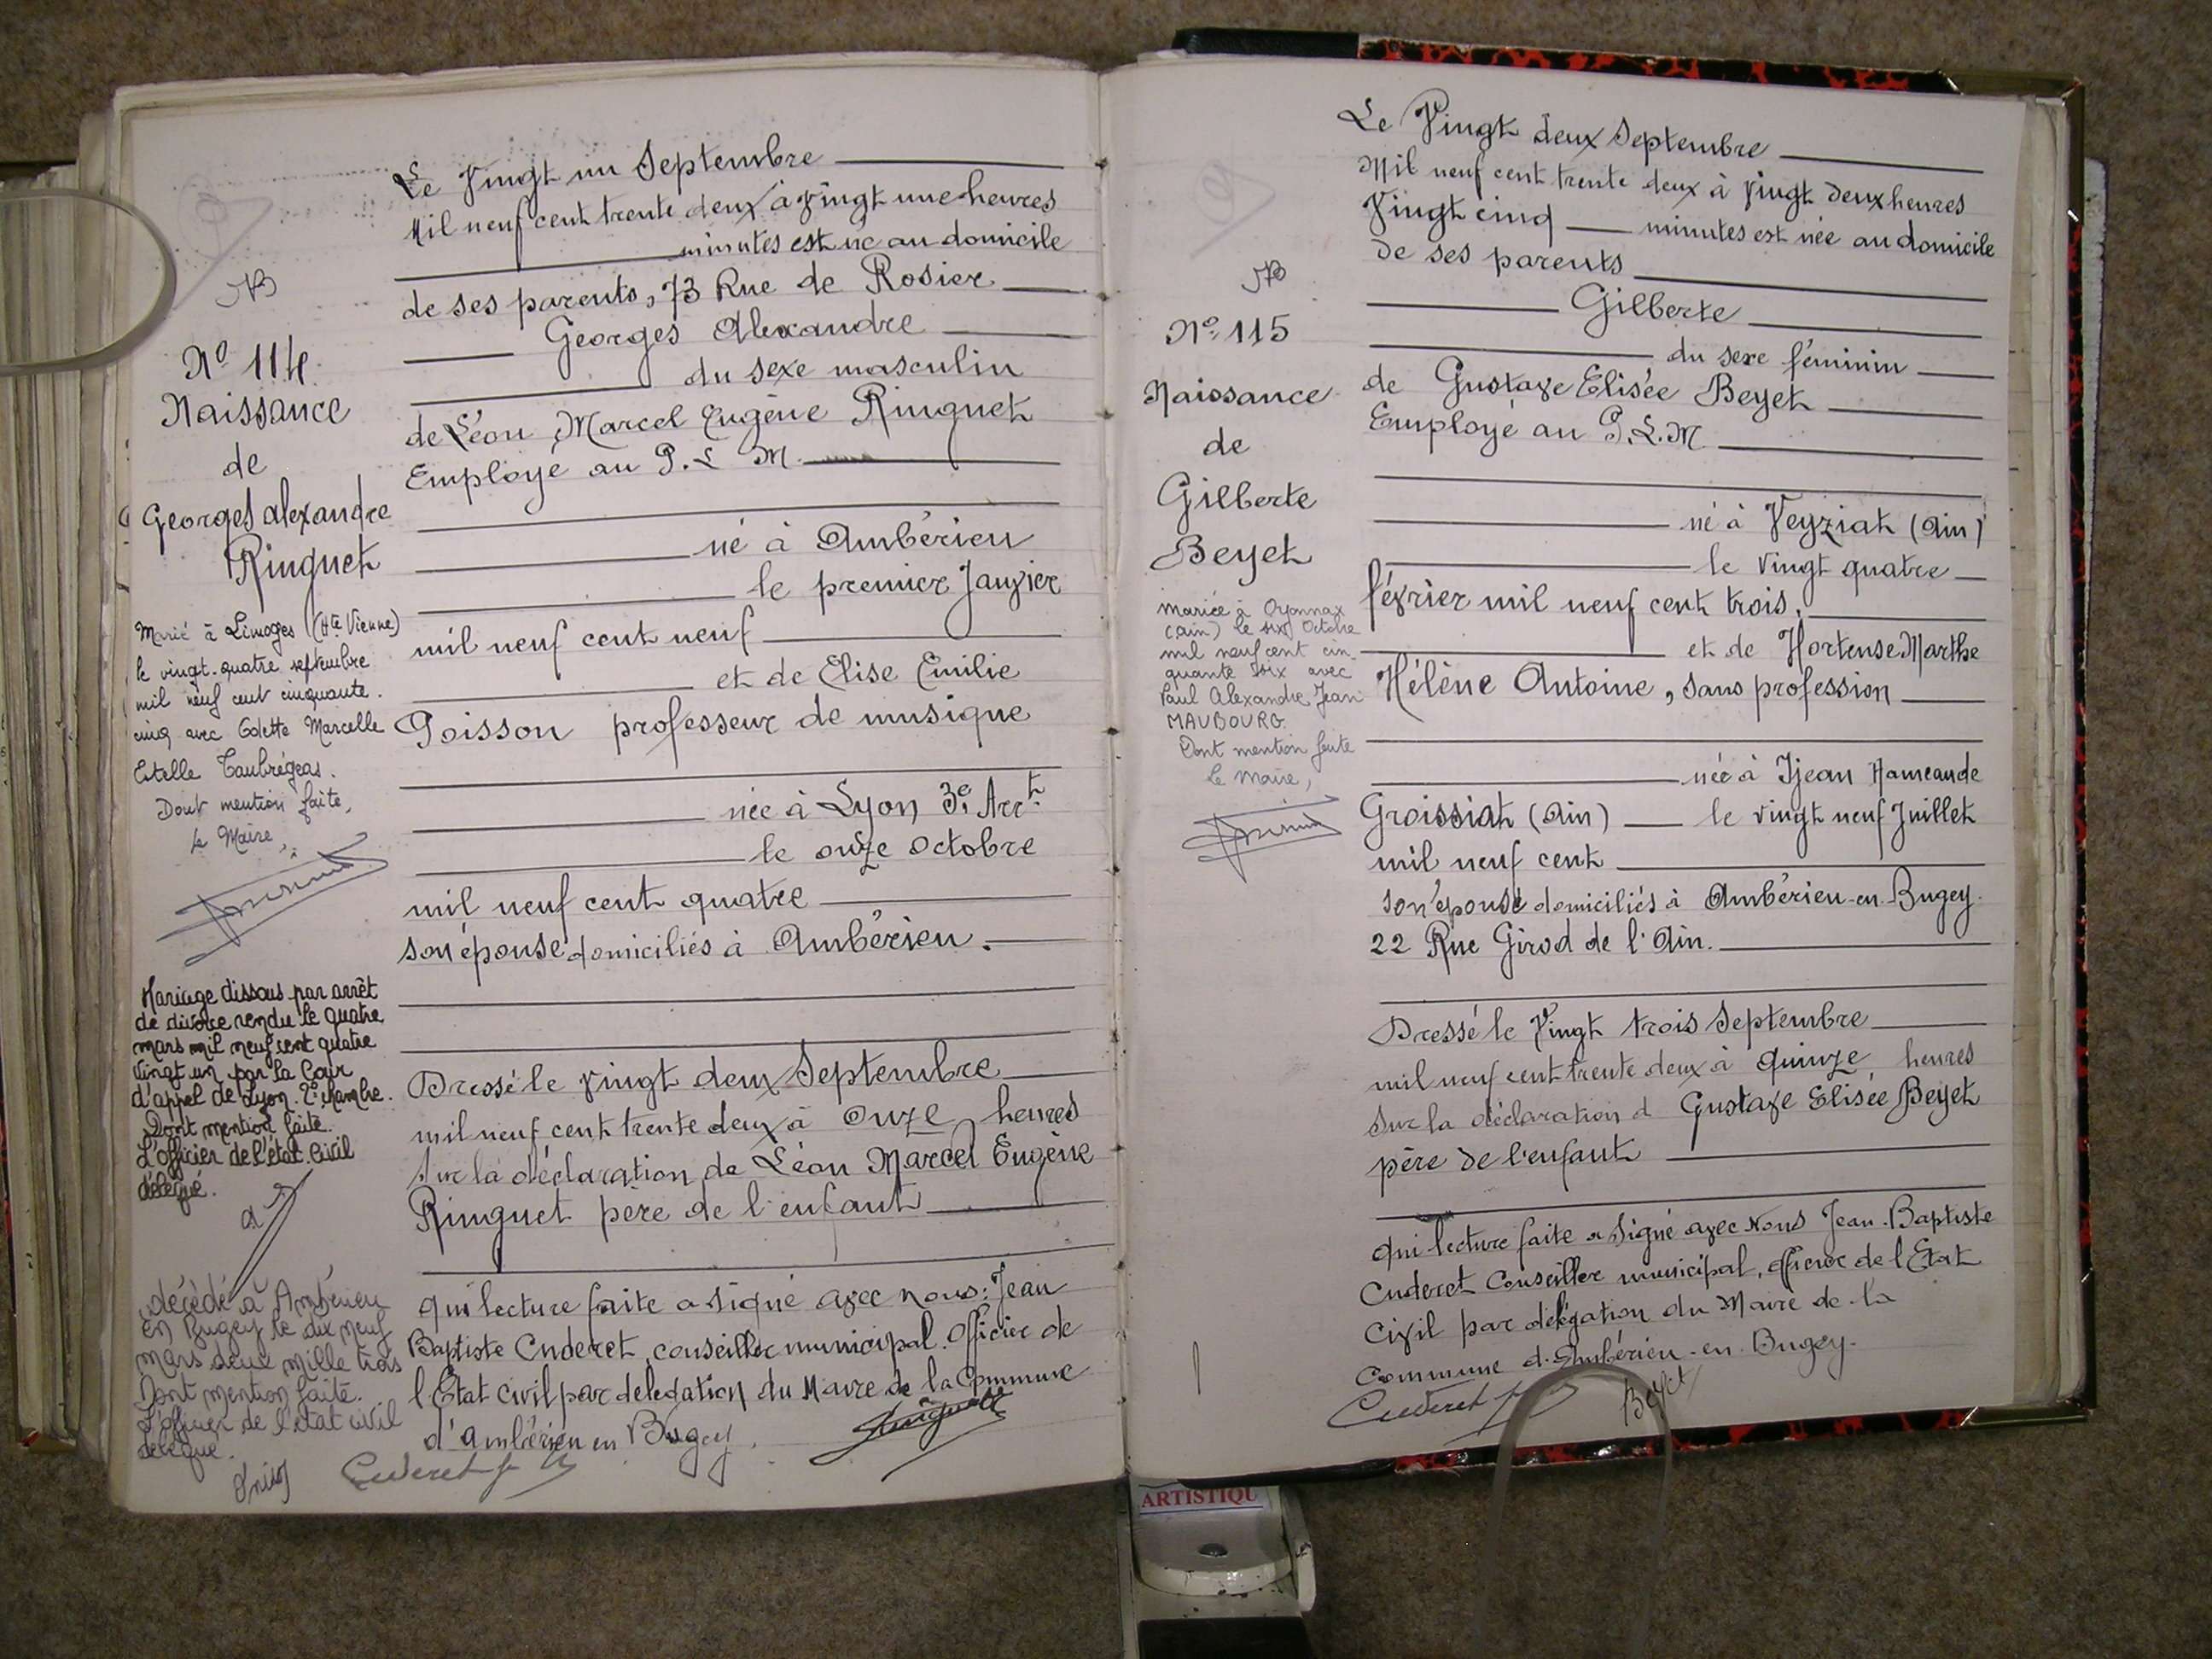 NB
Nº 114
Naissance
de
Georges Alexandre
Ringuet
Marié à Limoges (Hte Vienne)
le vingt-quatre septembre
mil neuf cent cinquante-
cinq avec Colette Marcelle
Estelle Taubrégeas.
Dont mention faite,
Le Maire,
Mariage dissous par arrêt
de divorce rendu le quatre
mars mil neuf cent quatre
vingt un par la Cour
d'appel de Lyon. 2e chambre.
Dont mention faite.
L'officier de l'état civil
délégué.
décédé à Ambérieu
en Bugey le dix neuf
mars deux mille trois
Dont mention faite.
L'officier de l'état civil
délégué.
Le Vingt un Septembre
Mil neuf cent trente deux à vingt une heures
minutes est né au domicile
de ses parents, 73 Rue de Rosier
Georges Alexandre
du sexe masculin
de Léon Marcel Eugène Ringuet
Employé au P. L M.
né à Ambérieu
le premier Janvier
mil neuf cent neuf
et de Elise Emilie
Poisson professeur de musique
née à Lyon 3e Arrt
le onze octobre
mil neuf cent quatre
son épouse domiciliés à Ambérieu.
Dressé le vingt deux Septembre
mil neuf cent trente deux à onze heures
Sur la déclaration de Léon Marcel Eugène
Ringuet père de l'enfant
qui lecture faite a signé avec nous: Jean
Baptiste Cuderet, conseiller municipal. Officier de
l'Etat civil par delegation du Maire de la Commune
d'Ambérieu en Bugey.
Cuderet
NB
Nº 115
Naissance
de
Gilberte
Beyet
Mariée à Oyonnax
(Ain) le six Octobre
mil neuf cent cin-
quante six avec
Paul Alexandre Jean
MAUBOURG.
Dont mention faite
Le Maire,
Le Vingt deux Septembre
Mil neuf cent trente deux à vingt deux heures
Vingt cinq minutes est née au domicile
de ses parents
Gilberte
du sexe féminin
de Gustave Elisée Beyet
Employé au P.L.M
né à Veyziat (Ain)
le vingt quatre
février mil neuf cent trois.
et de Hortense Marthe
Hélène Antoine, sans profession
née à Ijean Hameau de
Groissiat (Ain) le vingt neuf Juillet
mil neuf cent
son épouse domiciliés à Ambérieu-en-Bugey.
22 Rue Girod de l'Ain.
Dressé le Vingt trois Septembre
mil neuf cent trente deux à quinze heures
Sur la déclaration d Gustave Elisée Beyet
père de l'enfant
qui lecture faite a signé avec Nous Jean-Baptiste
Cuderet Conseiller municipal, officier de l'Etat
Civil par délégation du Maire de la
Commune d'Ambérieu-en-Bugey.
Cuderet Beyet
ARTISTIQU